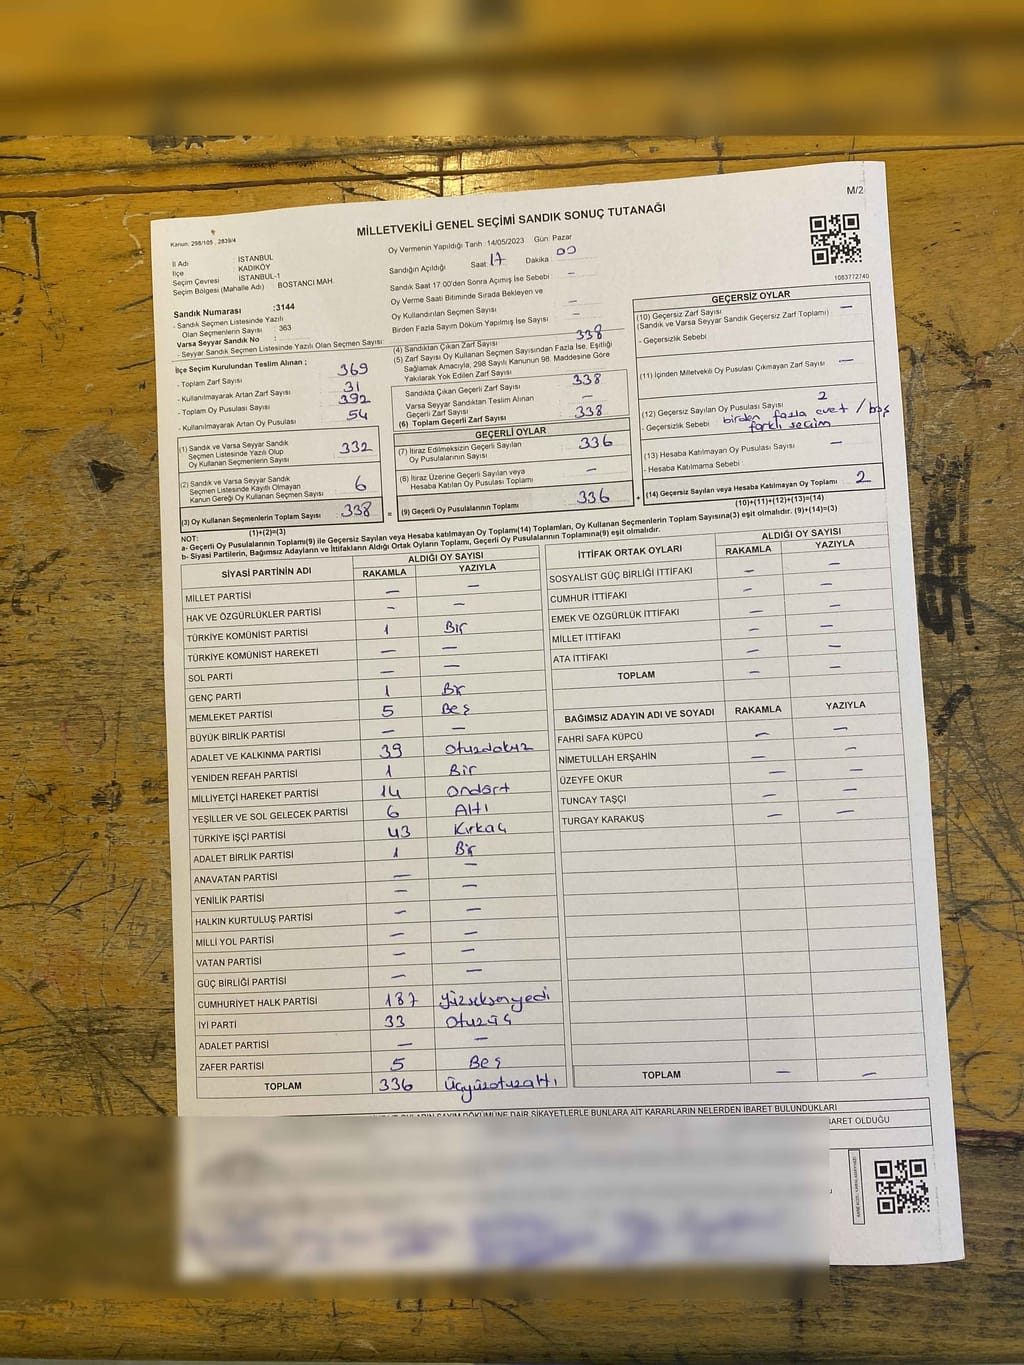 M/2
MİLLETVEKİLİ GENEL SEÇİMİ SANDIK SONUÇ TUTANAĞI
Kanun: 298/105 , 2839/4
İl Adı İSTANBUL
İlçe KADIKÖY
Seçim Çevresi İSTANBUL-1
Seçim Bölgesi (Mahalle Adı) : BOSTANCI MAH
Sandık Numarası :3144
- Sandık Seçmen Listesinde Yazılı
Olan Seçmenlerin Sayısı : 363
Varsa Seyyar Sandık No :
- Seyyar Sandık Seçmen Listesinde Yazılı Olan Seçmen Sayısı:
Oy Vermenin Yapıldığı Tarih : 14/05/2023 Gün: Pazar
Sandığın Açıldığı Saat: 17 Dakika : 00
Sandık Saat 17:00'den Sonra Açılmış İse Sebebi : –
Oy Verme Saati Bitiminde Sırada Bekleyen ve
Oy Kullandırılan Seçmen Sayısı : –
Birden Fazla Sayım Döküm Yapılmış İse Sayısı : –
1083772740
İlçe Seçim Kurulundan Teslim Alınan ;
- Toplam Zarf Sayısı : 369
- Kullanılmayarak Artan Zarf Sayısı : 31
- Toplam Oy Pusulası Sayısı : 392
- Kullanılmayarak Artan Oy Pusulası : 54
(1) Sandık ve Varsa Seyyar Sandık
Seçmen Listesinde Yazılı Olup
Oy Kullanan Seçmenlerin Sayısı 332
(2) Sandık ve Varsa Seyyar Sandık
Seçmen Listesinde Kayıtlı Olmayan
Kanun Gereği Oy Kullanan Seçmen Sayısı 6
(3) Oy Kullanan Seçmenlerin Toplam Sayısı 338
(1)+(2)=(3)
(4) Sandıktan Çıkan Zarf Sayısı 338
(5) Zarf Sayısı Oy Kullanan Seçmen Sayısından Fazla İse, Eşitliği
Sağlamak Amacıyla, 298 Sayılı Kanunun 98. Maddesine Göre
Yakılarak Yok Edilen Zarf Sayısı
Sandıkta Çıkan Geçerli Zarf Sayısı 338
Varsa Seyyar Sandıktan Teslim Alınan
Geçerli Zarf Sayısı –
(6) Toplam Geçerli Zarf Sayısı 338
GEÇERLİ OYLAR
(7) İtiraz Edilmeksizin Geçerli Sayılan
Oy Pusulalarının Sayısı 336
(8) İtiraz Üzerine Geçerli Sayılan veya
Hesaba Katılan Oy Pusulası Toplamı –
= (9) Geçerli Oy Pusulalarının Toplamı 336 +
GEÇERSİZ OYLAR
(10) Geçersiz Zarf Sayısı
(Sandık ve Varsa Seyyar Sandık Geçersiz Zarf Toplamı) –
- Geçersizlik Sebebi :
(11) İçinden Milletvekili Oy Pusulası Çıkmayan Zarf Sayısı –
(12) Geçersiz Sayılan Oy Pusulası Sayısı 2
- Geçersizlik Sebebi : birden fazla evet / boş
farklı seçim
(13) Hesaba Katılmayan Oy Pusulası Sayısı –
- Hesaba Katılmama Sebebi :
(14) Geçersiz Sayılan veya Hesaba Katılmayan Oy Toplamı 2
(10)+(11)+(12)+(13)=(14)
NOT:
a- Geçerli Oy Pusulalarının Toplamı(9) ile Geçersiz Sayılan veya Hesaba katılmayan Oy Toplamı(14) Toplamları, Oy Kullanan Seçmenlerin Toplam Sayısına(3) eşit olmalıdır. (9)+(14)=(3)
b- Siyasi Partilerin, Bağımsız Adayların ve İttifakların Aldığı Ortak Oyların Toplamı, Geçerli Oy Pusulalarının Toplamına(9) eşit olmalıdır.
SİYASİ PARTİNİN ADI ALDIĞI OY SAYISI
RAKAMLA YAZIYLA
MİLLET PARTİSİ – –
HAK VE ÖZGÜRLÜKLER PARTİSİ – –
TÜRKİYE KOMÜNİST PARTİSİ 1 Bir
TÜRKİYE KOMÜNİST HAREKETİ – –
SOL PARTİ – –
GENÇ PARTİ 1 Bir
MEMLEKET PARTİSİ 5 Beş
BÜYÜK BİRLİK PARTİSİ – –
ADALET VE KALKINMA PARTİSİ 39 Otuzdokuz
YENİDEN REFAH PARTİSİ 1 Bir
MİLLİYETÇİ HAREKET PARTİSİ 14 Ondört
YEŞİLLER VE SOL GELECEK PARTİSİ 6 Altı
TÜRKİYE İŞÇİ PARTİSİ 43 Kırküç
ADALET BİRLİK PARTİSİ 1 Bir
ANAVATAN PARTİSİ – –
YENİLİK PARTİSİ – –
HALKIN KURTULUŞ PARTİSİ – –
MİLLİ YOL PARTİSİ – –
VATAN PARTİSİ – –
GÜÇ BİRLİĞİ PARTİSİ – –
CUMHURİYET HALK PARTİSİ 187 Yüzseksenyedi
İYİ PARTİ 33 Otuzüç
ADALET PARTİSİ – –
ZAFER PARTİSİ 5 Beş
TOPLAM 336 Üçyüzotuzaltı
İTTİFAK ORTAK OYLARI ALDIĞI OY SAYISI
RAKAMLA YAZIYLA
SOSYALİST GÜÇ BİRLİĞİ İTTİFAKI – –
CUMHUR İTTİFAKI – –
EMEK VE ÖZGÜRLÜK İTTİFAKI – –
MİLLET İTTİFAKI – –
ATA İTTİFAKI – –
TOPLAM – –
BAĞIMSIZ ADAYIN ADI VE SOYADI RAKAMLA YAZIYLA
FAHRİ SAFA KÜPCÜ – –
NİMETULLAH ERŞAHİN – –
ÜZEYFE OKUR – –
TUNCAY TAŞÇI – –
TURGAY KARAKUŞ – –
TOPLAM – –
OYLARIN SAYIM DÖKÜMÜNE DAİR ŞİKAYETLERLE BUNLARA AİT KARARLARIN NELERDEN İBARET BULUNDUKLARI
İBARET OLDUĞU